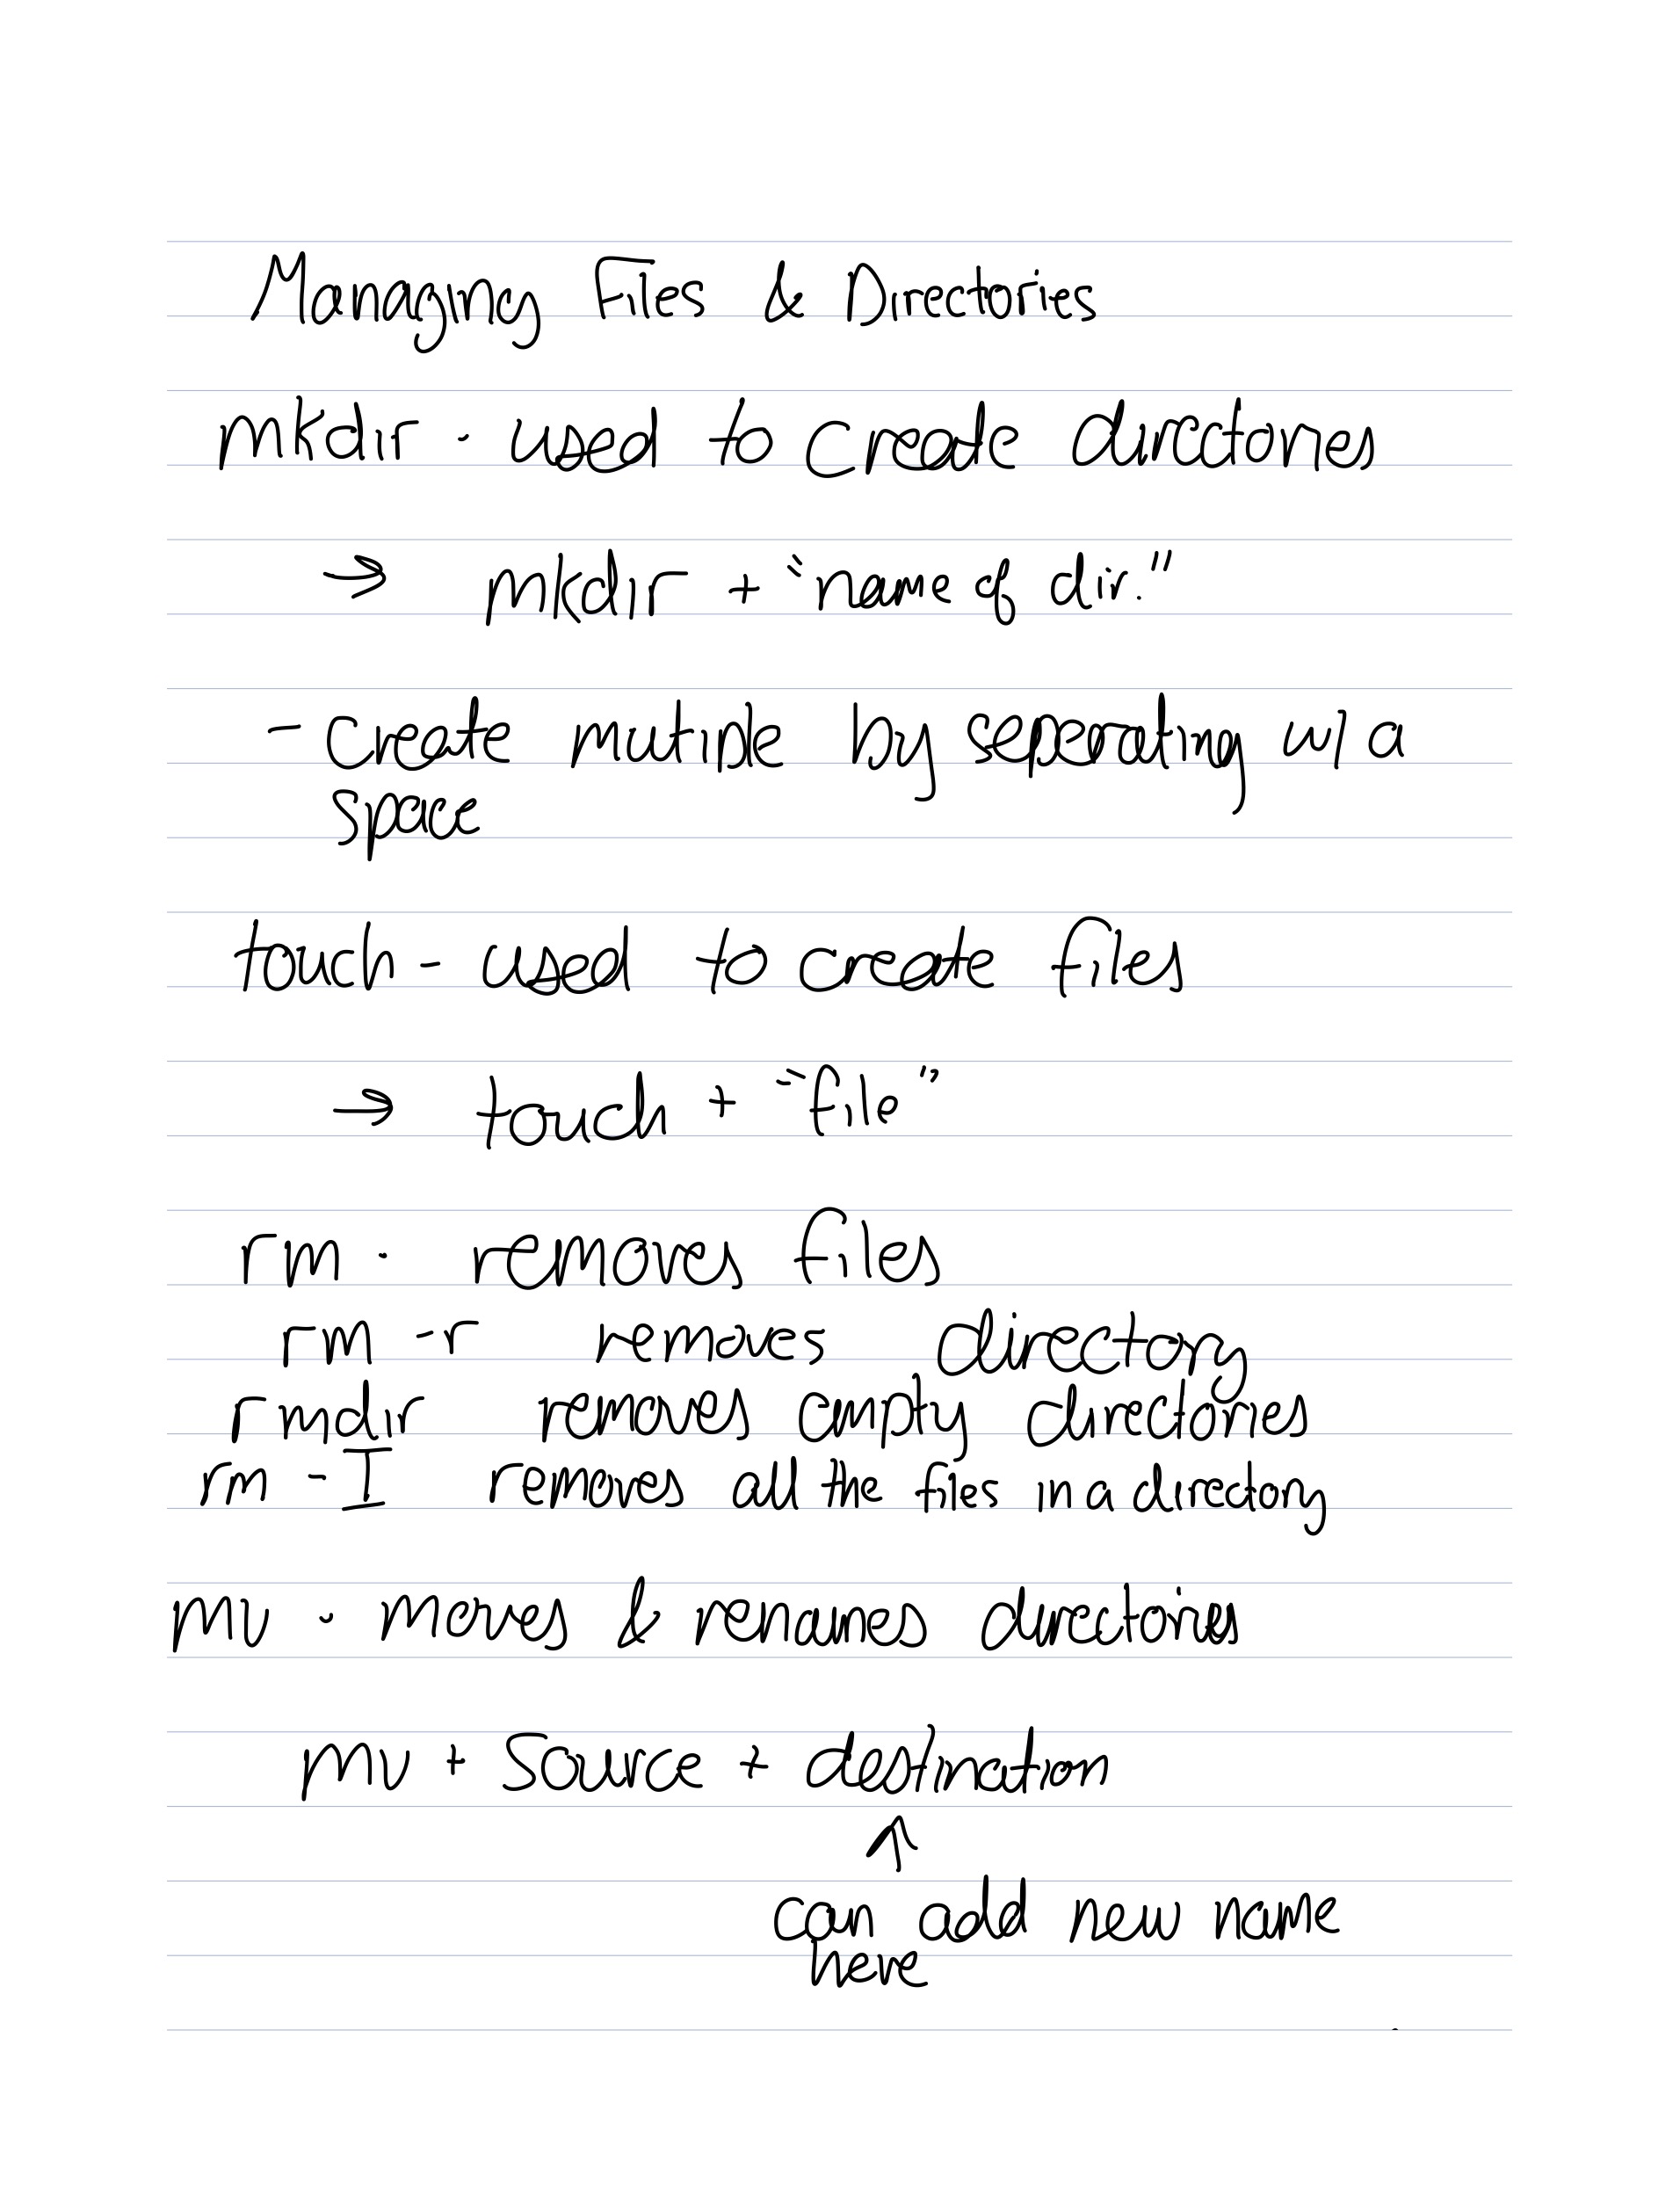 Managing Files & Directories
mkdir - used to create directories
→ mkdir + "name of dir."
- Create mutiple by seperating w/ a
space
touch - used to create files
→ touch + "file"
rm - removes files
rm -r removes directory
rmdir removes empty directories
rm -I removes all the files in a directory
mv - moves & renames directories
mv + Source + destination
↑
can add new name
here